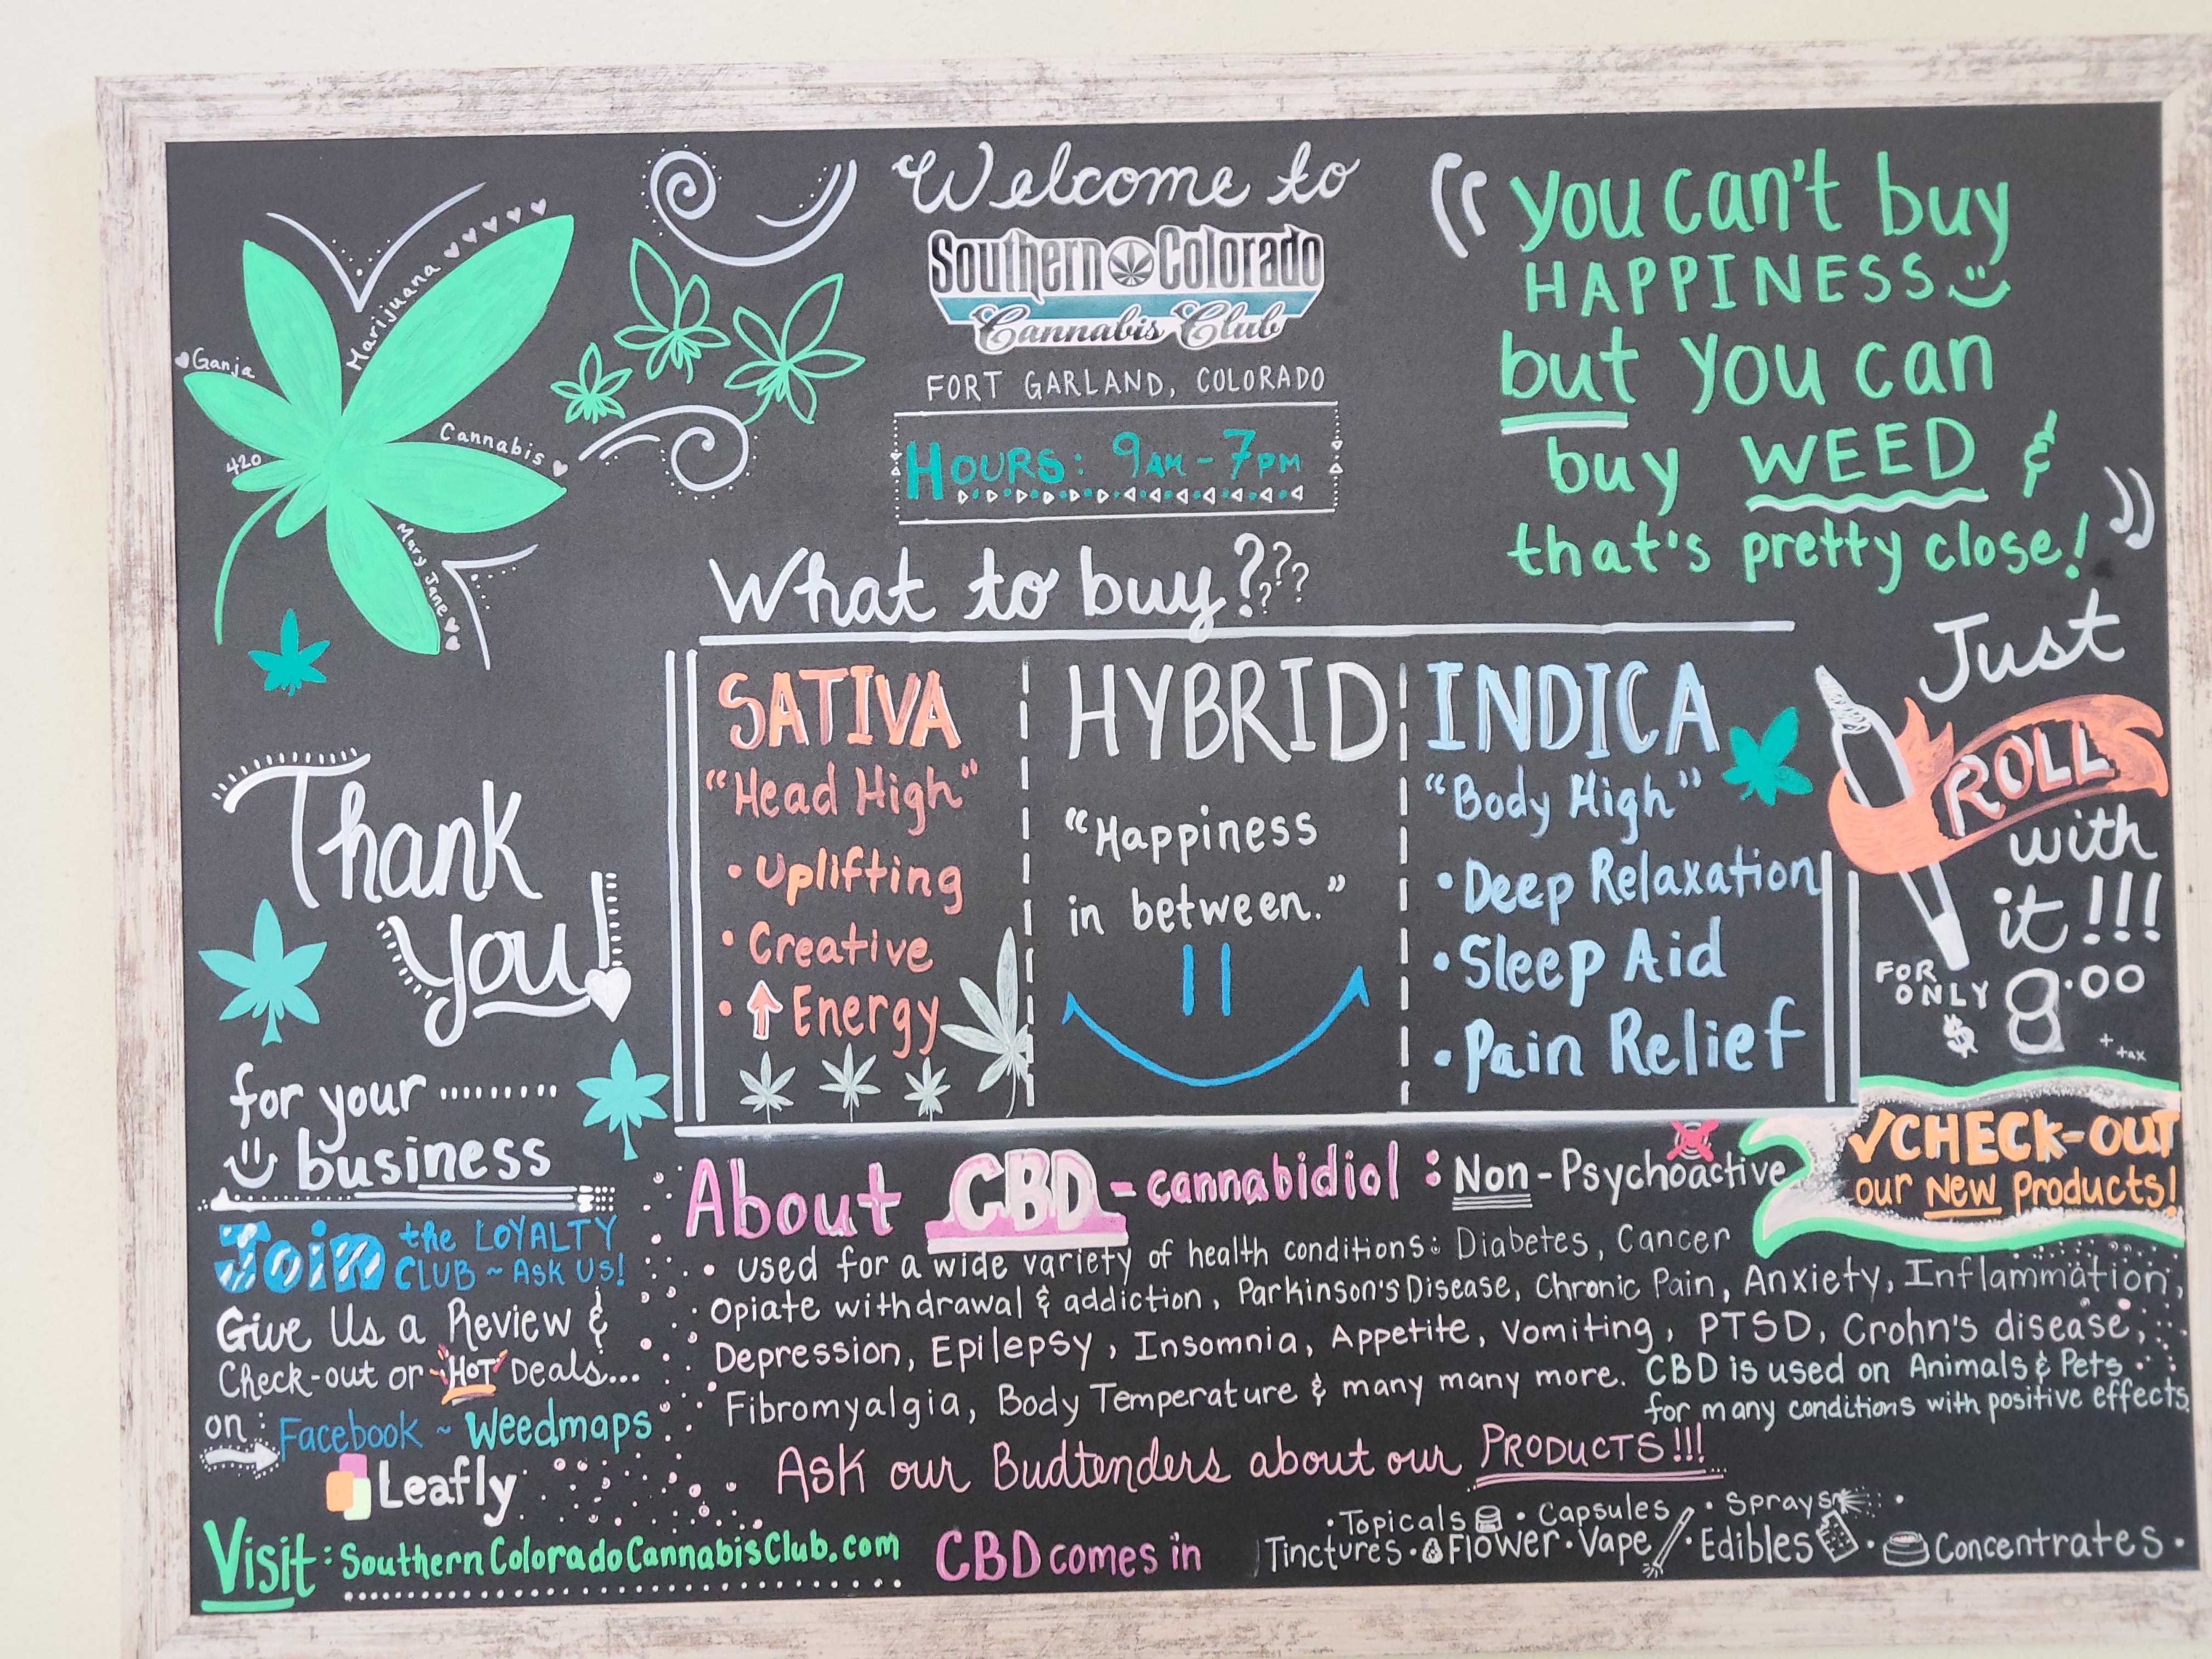 Welcome to
Southern Colorado
Cannabis Club
FORT GARLAND, COLORADO
HOURS: 9AM - 7PM
"You can't buy
HAPPINESS
but you can
buy WEED &
that's pretty close!"
Marijuana
Ganja
Cannabis
420
Mary Jane
What to buy????
SATIVA
"Head High"
• Uplifting
• Creative
• ↑ Energy
HYBRID
"Happiness
in between."
INDICA
"Body High"
• Deep Relaxation
• Sleep Aid
• Pain Relief
Just
ROLL
with
it!!!
FOR
ONLY
$8.00
+ tax
✓CHECK-OUT
our NEW Products!
Thank
You!
for your ........
business
Join the LOYALTY
CLUB ~ ASK US!
Give Us a Review &
Check-out or HOT Deals...
on: Facebook ~ Weedmaps
Leafly
Visit: SouthernColoradoCannabisClub.com
About CBD - cannabidiol : Non-Psychoactive
• used for a wide variety of health conditions: Diabetes, Cancer
Opiate withdrawal & addiction, Parkinson's Disease, Chronic Pain, Anxiety, Inflammation,
Depression, Epilepsy, Insomnia, Appetite, Vomiting, PTSD, Crohn's disease,
Fibromyalgia, Body Temperature & many many more. CBD is used on Animals & Pets
for many conditions with positive effects.
Ask our Budtenders about our PRODUCTS!!!
CBD comes in
• Topicals • Capsules • Sprays •
Tinctures • Flower • Vape • Edibles • Concentrates •